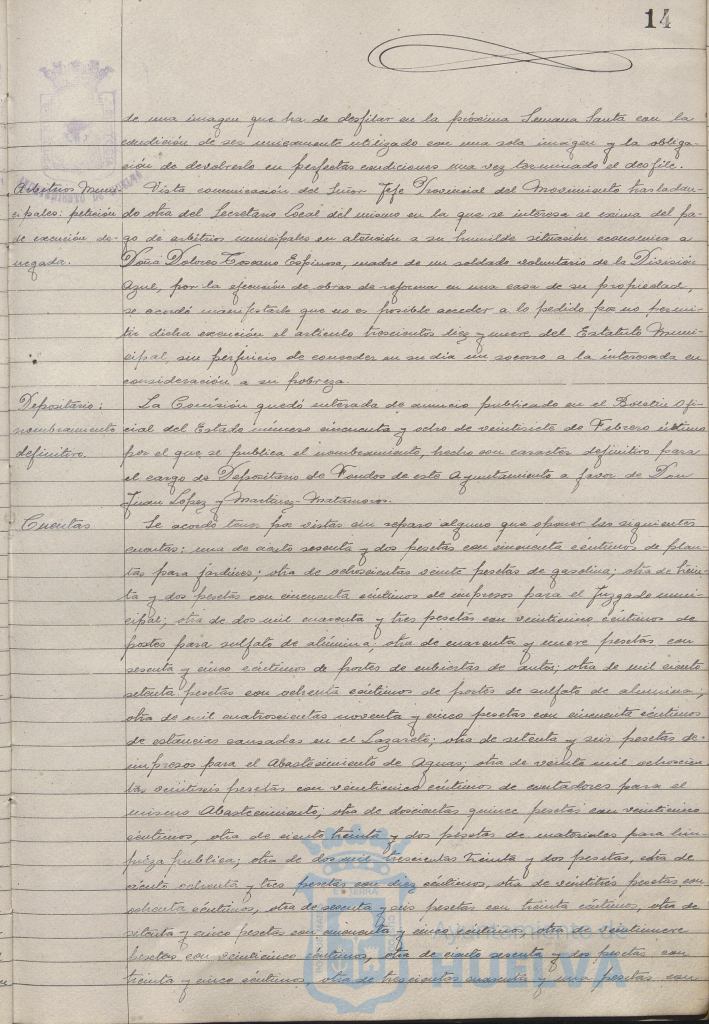 14
de una imagen que ha de desfilar en la próxima Semana Santa con la
condición de ser unicamente utilizado con una sola imagen y la obliga-
ción de devolverlo en perfectas condiciones una vez terminado el desfile.
Arbitrios Muni-
cipales: petición
de exención de-
negada.
Vista comunicación del Señor Jefe Provincial del Movimiento trasladan-
do otra del Secretario local del mismo en la que se interesa se exima del pa-
go de arbitrios municipales en atención a su humilde situación economica a
Doña Dolores Toscano Espinosa, madre de un soldado voluntario de la División
Azul, por la ejecución de obras de reforma en una casa de su propiedad,
se acordó manifestarle que no es posible acceder a lo pedido por no permi-
tir dicha exención el articulo trescientos diez y nueve del Estatuto Muni-
cipal, sin perjuicio de conceder en su dia un socorro a la interesada en
consideración a su pobreza.
Depositario:
nombramiento
definitivo.
La Comisión quedó enterada de anuncio publicado en el Boletin Ofi-
cial del Estado número cincuenta y ocho de veintisiete de Febrero último
por el que se publica el nombramiento, hecho con caracter definitivo para
el cargo de Depositario de Fondos de este Ayuntamiento a favor de Don
Juan López y Martínez-Matamoros.
Cuentas
Se acordó tener por vistas sin reparo alguno que oponer las siguientes
cuentas: una de ciento sesenta y dos pesetas con cincuenta céntimos de plan-
tas para jardines; otra de ochocientas veinte pesetas de gasolina; otra de trein-
ta y dos pesetas con cincuenta céntimos de impresos para el Juzgado muni-
cipal; otra de dos mil cuarenta y tres pesetas con veinticinco céntimos de
portes para sulfato de alúmina; otra de cuarenta y nueve pesetas con
sesenta y cinco céntimos de portes de cubiertas de autos; otra de mil ciento
setenta pesetas con ochenta céntimos de portes de sulfato de alumina;
otra de mil cuatrocientas noventa y cinco pesetas con cincuenta céntimos
de estancias causadas en el Lazareto; otra de setenta y seis pesetas de
impresos para el Abastecimiento de Aguas; otra de veinte mil ochocien-
tas veintiseis pesetas con veinticinco céntimos de contadores para el
mismo Abastecimiento; otra de doscientas quince pesetas con veinticinco
céntimos, otra de ciento treinta y dos pesetas de materiales para lim-
pieza publica; otra de dos mil trescientas treinta y dos pesetas, otra de
ciento ochenta y tres pesetas con diez céntimos, otra de veintitrés pesetas con
ochenta céntimos, otra de sesenta y seis pesetas con treinta céntimos, otra de
setenta y cinco pesetas con cincuenta y cinco céntimos, otra de veintinueve
pesetas con veinticinco céntimos, otra de ciento sesenta y dos pesetas con
treinta y cinco céntimos, otra de trescientas cuarenta y una pesetas con
Ayuntamiento de
HUELVA